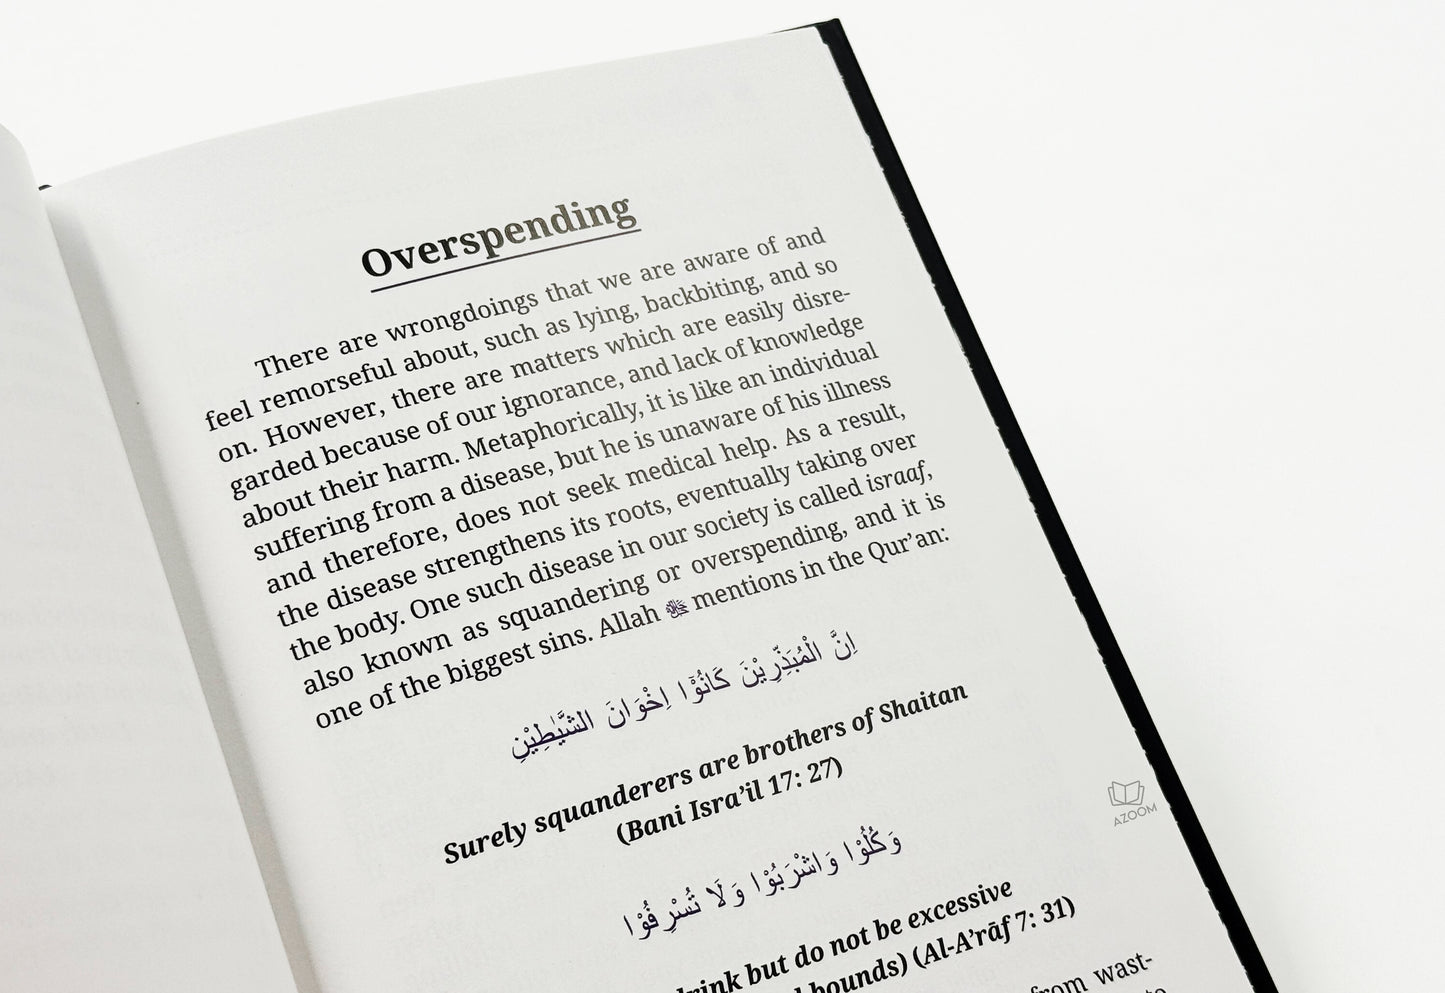 Overspending
There are wrongdoings that we are aware of and
feel remorseful about, such as lying, backbiting, and so
on. However, there are matters which are easily disre-
garded because of our ignorance, and lack of knowledge
about their harm. Metaphorically, it is like an individual
suffering from a disease, but he is unaware of his illness
and therefore, does not seek medical help. As a result,
the disease strengthens its roots, eventually taking over
the body. One such disease in our society is called israaf,
also known as squandering or overspending, and it is
one of the biggest sins. Allah ﷻ mentions in the Qur’an:
اِنَّ الْمُبَذِّرِيْنَ كَانُوْٓا اِخْوَانَ الشَّيٰطِيْنِ
Surely squanderers are brothers of Shaitan
(Bani Isra’il 17: 27)
وَكُلُوْا وَاشْرَبُوْا وَلَا تُسْرِفُوْا
drink but do not be excessive
bounds) (Al-A’rāf 7: 31)
from wast-
to
AZOOM